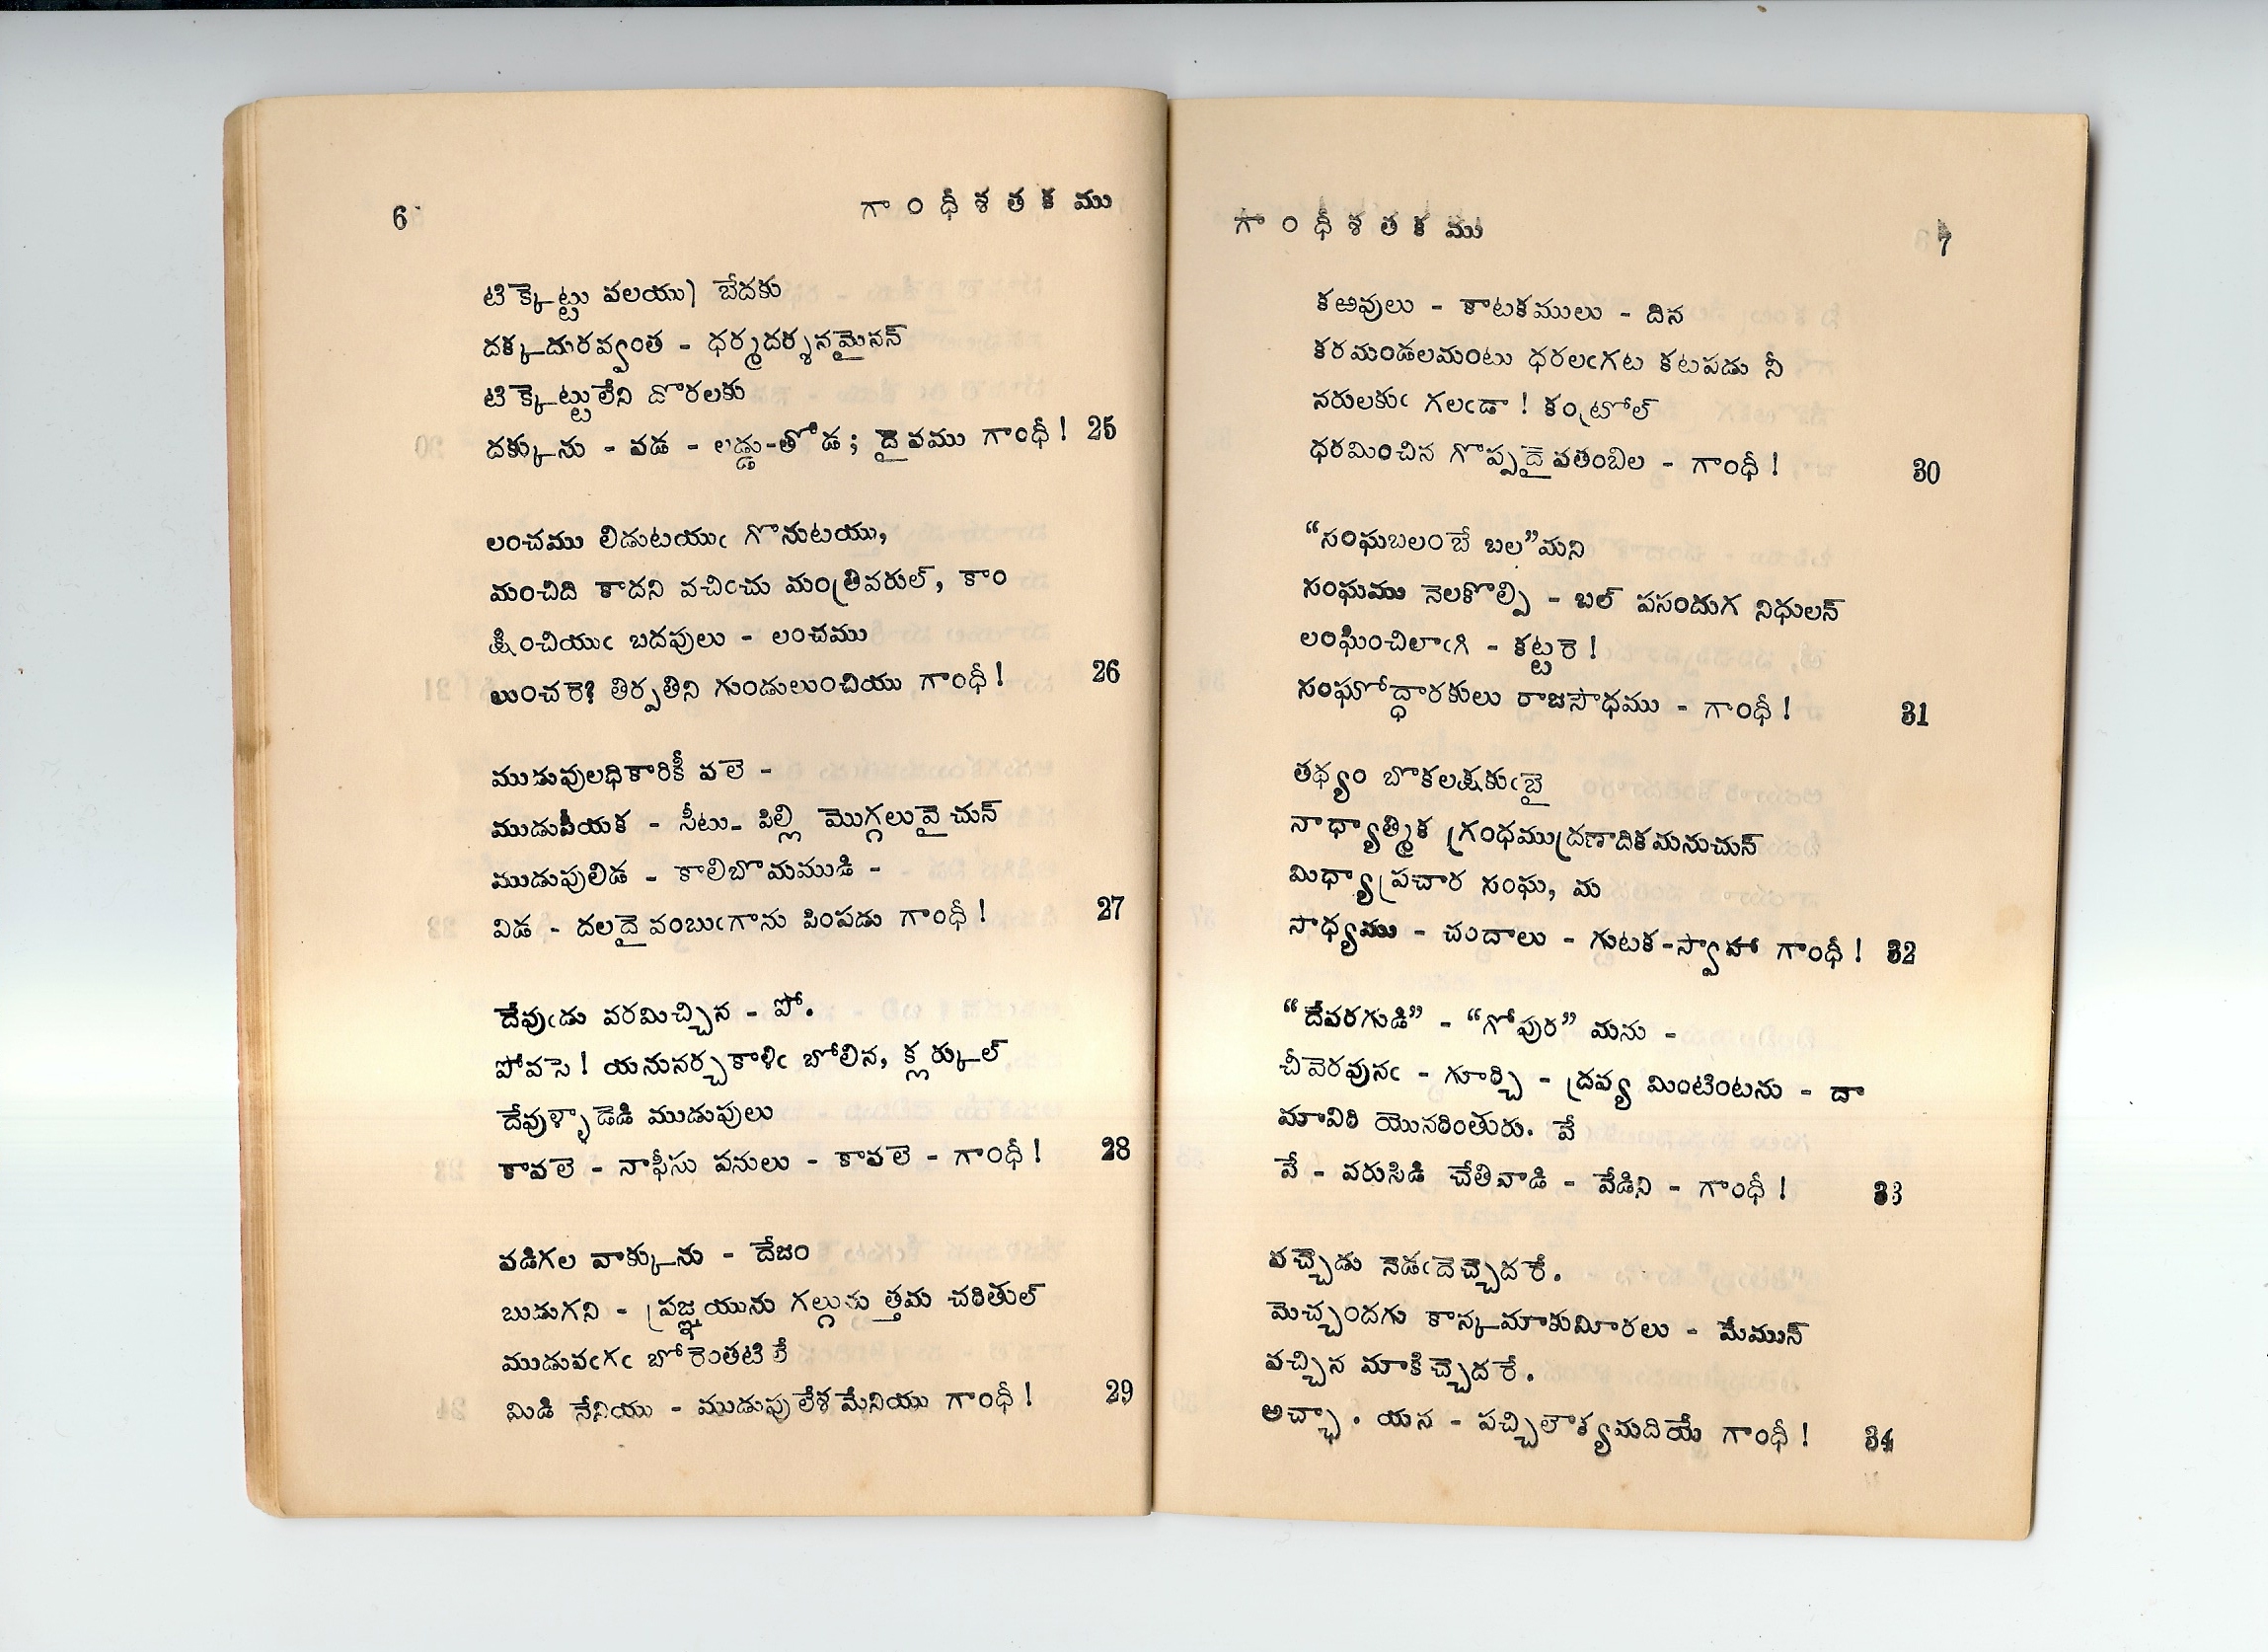 6
గాంధీశతకము
టిక్కెట్టు వలయు) బేదకు
దక్కదురవ్వంత - ధర్మదర్శనమైనన్
టిక్కెట్టులేని దొరలకు
దక్కును - వడ - లడ్డు-తోడ; దైవము గాంధీ! 25
లంచము లిడుటయుఁ గొనుటయు,
మంచిది కాదని వచించు మంత్రివరుల్, కాం
క్షించియుఁ బదపులు - లంచము
లుంచరె? తిర్పతిని గుండులుంచియు గాంధీ! 26
ముడువులధికారికీ వలె -
ముడుపీయక - సీటు- పిల్లి మొగ్గలువైచున్
ముడుపులిడ - కాలిబొమముడి -
విడ - దలదైవంబుఁగాను పింపడు గాంధీ! 27
దేవుఁడు వరమిచ్చిన - పో.
పోవసె! యనునర్చకాళిఁ బోలిన, క్లర్కుల్
దేవుళ్ళాడెడి ముడుపులు
కావలె - నాఫీసు పనులు - కావలె - గాంధీ! 28
వడిగల వాక్కును - దేజం
బుడుగని - ప్రజ్ఞయును గల్గును త్తమ చరితుల్
ముడువఁగఁ బోరెంతటికే
మిడి నేనియు - ముడుపులేశమేనియు గాంధీ! 29
గాంధీశతకము
7
కఱవులు - కాటకములు - దిన
కరమండలమంటు ధరలఁగట కటపడు నీ
నరులకుఁ గలఁడా! కంట్రోల్
ధరమించిన గొప్పదైవతంబిల - గాంధీ! 30
“సంఘబలంబే బల”మని
సంఘము నెలకొల్పి - బల్ పసందుగ నిధులన్
లంఘించిలాఁగి - కట్టరె!
సంఘోద్ధారకులు రాజసౌధము - గాంధీ! 31
తథ్యం బొకలక్షకుఁబై
నాధ్యాత్మిక గ్రంధముద్రణాదికమనుచున్
మిధ్యాప్రచార సంఘ, మ
సాధ్యము - చందాలు - గుటక-స్వాహా గాంధీ! 32
“దేవరగుడి” - “గోపుర” మను -
చీవెరవునఁ - గూర్చి - ద్రవ్య మింటింటను - దా
మావిరి యొనరింతురు. వే
వే - వరుసిడి చేతివాడి - వేడిని - గాంధీ! 33
వచ్చెడు నెడఁదెచ్చెదరే.
మెచ్చందగు కాన్కమాకుమీరలు - మేమున్
వచ్చిన మాకిచ్చెదరే.
అచ్ఛా. యన - పచ్చిలౌక్యమదియే గాంధీ! 34